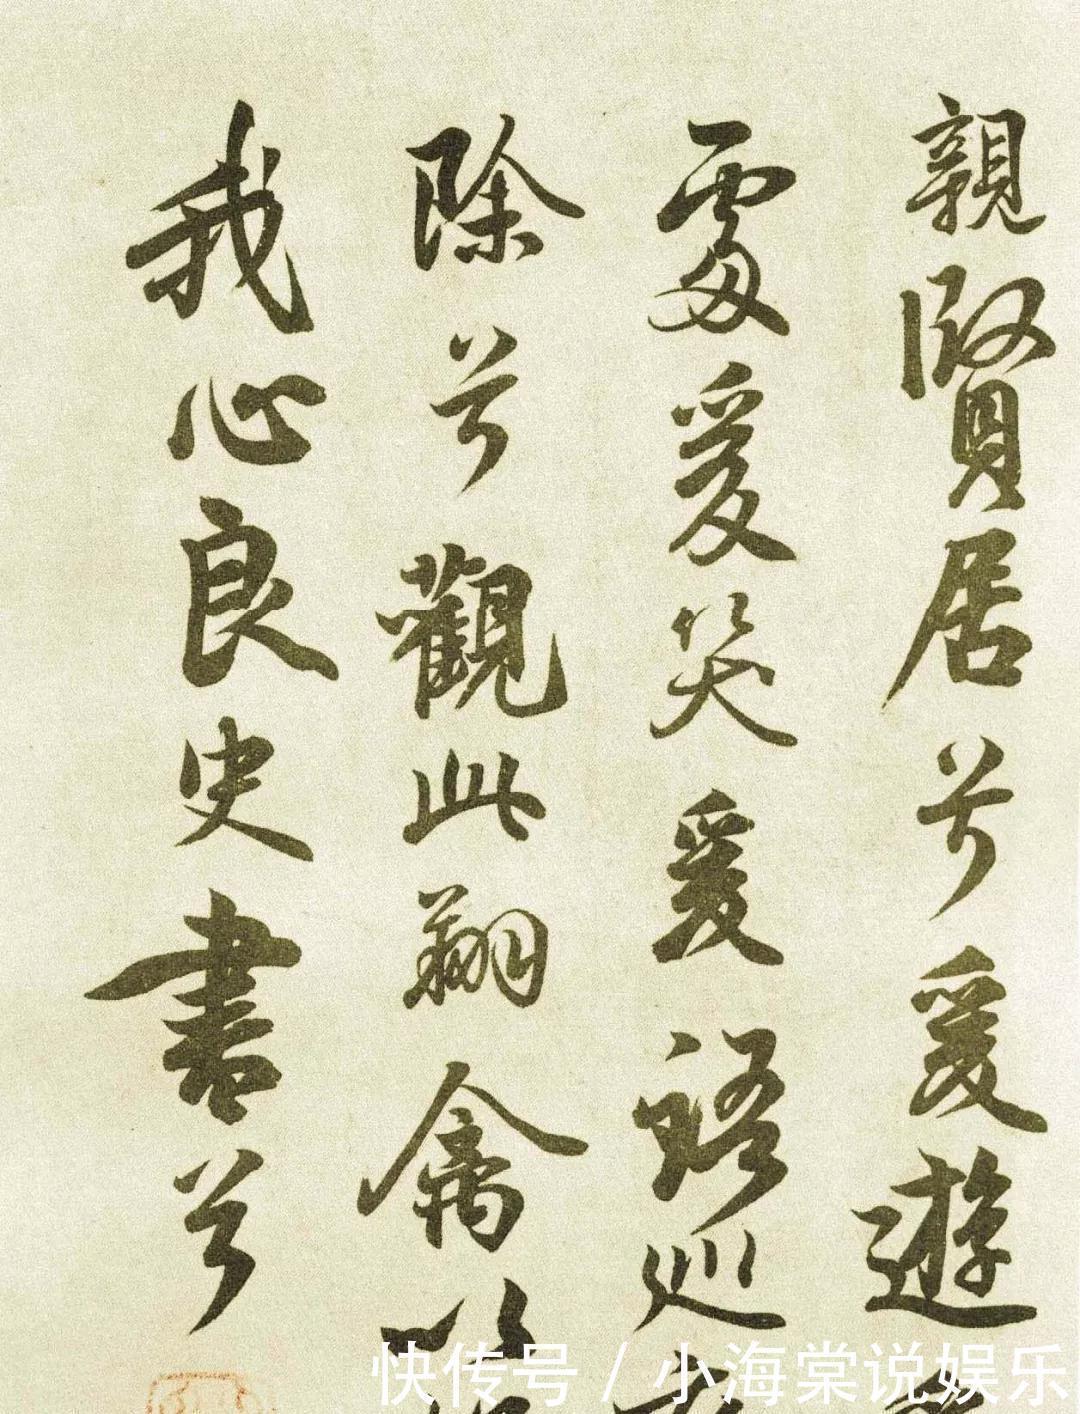 親賢居兮爰遊
處爰笑爰語巡
除兮觀此翔禽
我心良史書兮
快传号 / 小海棠说娱乐